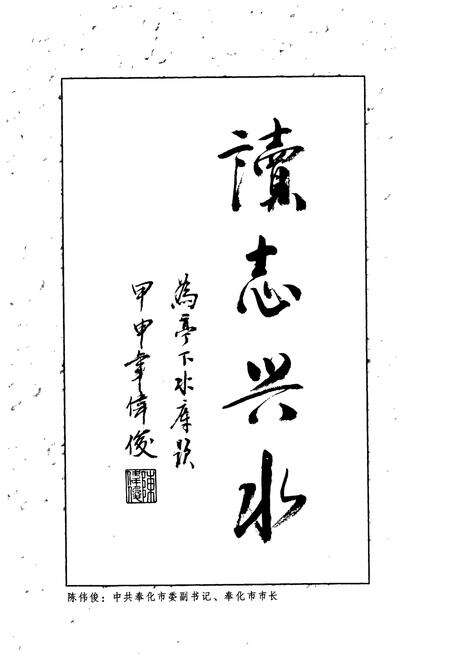 讀志兴水
為亭下水库题
甲申年偉俊
陳偉俊
陈伟俊：中共奉化市委副书记、奉化市市长